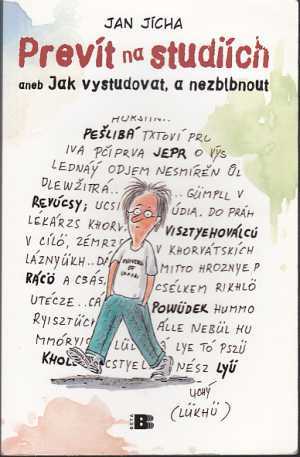 JAN JÍCHA
Prevít na studiích
aneb Jak vystudovat, a nezblbnout
PEŠLIBÁ TXTOVÍ PRC
IVA PŐIPRVA JEPR O VÝS
LEDNÁÝ ODJEM NESMÍRĚN ŰL
DLEWŽITRÁ.. GÜMPLL V
REVÚCSY; UCSI ÚDIA. DO PRÁH
LÉKÁRZS KHORV VISZTYEHOVÁLCÚ
V CÍLÓ, ZÉMRZS V KHORVÁTSKÍCH
LÁZNYÚKH.. DA MITTO HROZNYE.P
RÁCÖ A CSÁS. CSÉLKEM RIKHLÖ
UTÉCZE.. CA POWÜDEK HUMMO
RYISZTÜCK ÁLLE NEBÜL HU
MMÓRYIS LÜL Á LYE TÓ PSZÜ
KHOL CSTYEL NÉSZ LYŰ
ÚCHÝ
(LÜKHÜ)
BETA
B